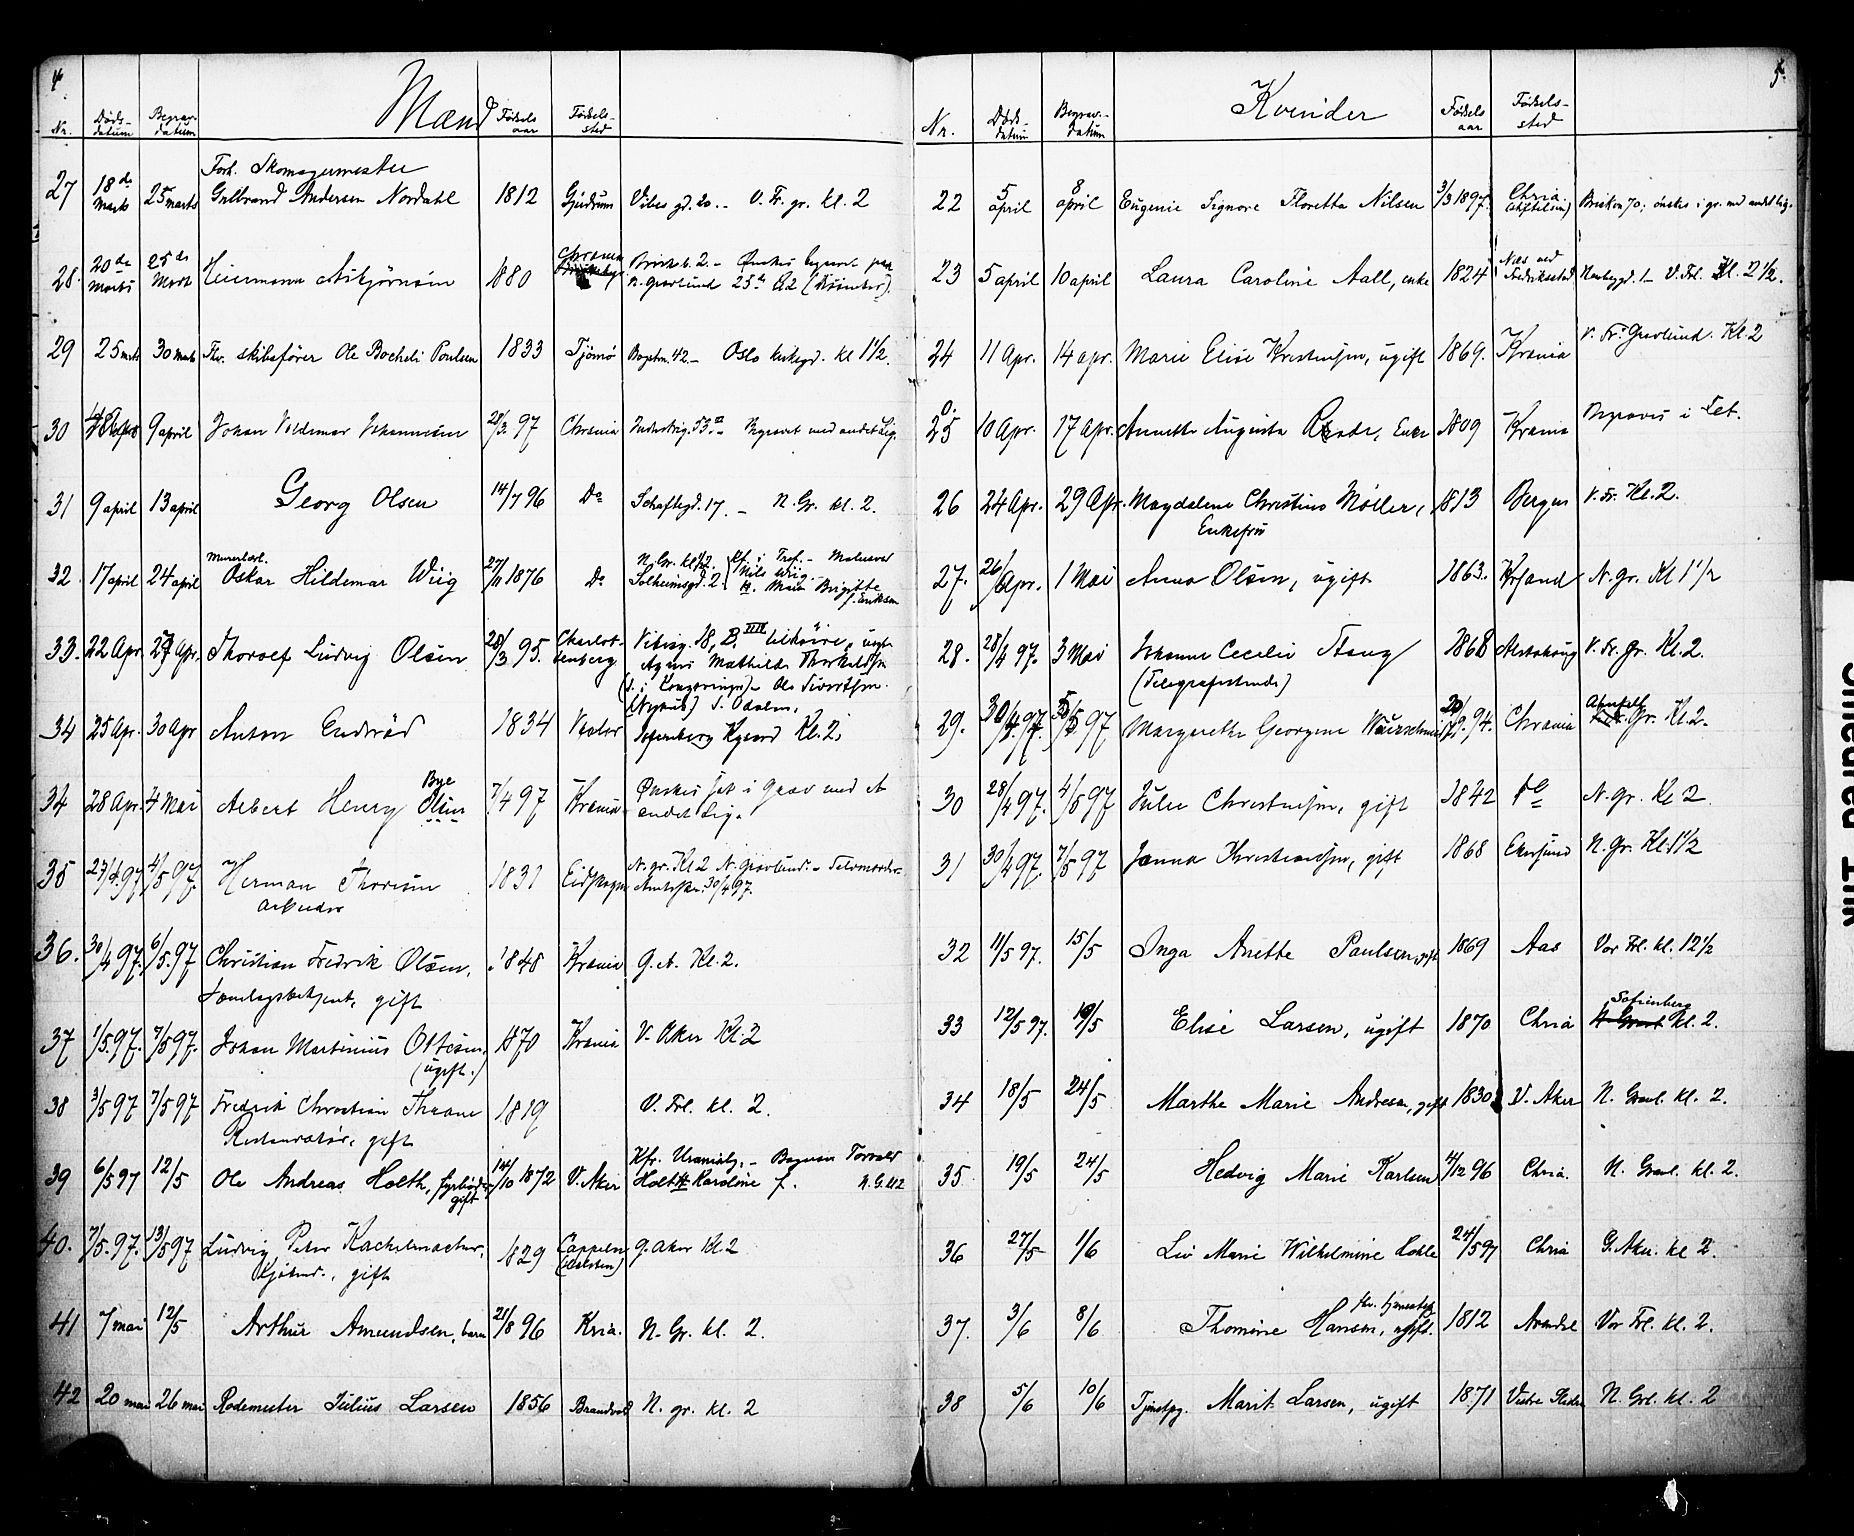 4
Mænd
Nr. Døds-datum Begrav.datum Fødselsaar Fødsels-sted
Forh. Skomagermester
27 18de Marts 25 marts Gulbrand Andersen Nordahl 1812 Gjerdrum Vibes gd. 20. - V. Fr. gr. kl. 2
28. 20de Marts 25de Marts Asbjørnsen 1880 Chrania
n. gravlund 25de kl. 2
29 25 mrts 30 marts Fhv. skibsfører Ole Bocheli Poulsen 1833 Tjømø 42 - Oslo kirkegd. kl 1 1/2.
30 9 april Johan Voldemar Johannesen 21/3 97 Chrania Begravet med andet Lig.
31 9 april 13 april Georg Olsen 14/7 96 Do Schaftegd. 17. - N. Gr. kl. 2.
Murerlærl.
32. 17 april 24 april Oskar Hildemar Wiig 27/11 1876 Do N. Gr. kl. 2. Solheimsgd. 2. Nils Wiig Brigitte f. Eriksen
33. 22 Apr. 27 Apr. Thorolf Ludvig Olsen 28/3 95. Charlottenberg Vibesg. 18, B. ugift Mathilde
34 25 Apr. 30 Apr Anton Enderød 1834 Sofienberg Kl. 2.
34 28 Apr. 4 Mai Albert Henry Olsen Bye 7/4 97 Krania Ønskes sat i Grav med et andet Lig.
35 27/4 97 4/5 97. Herman Thoresen 1831 Eidskogen N. gr. Kl 2 N. Gravlund. - Selvmorder. 30/4 97.
Arbeider
36. 30/4 97. 6/5 97 Christian Fredrik Olsen, 1848 Krania G. A. Kl. 2.
gift
37 1/5 97. 7/5 97. Johan Martinius Ottesen, 1870 Krania V. Aker Kl. 2
(ugift.)
38 3/5 97 7/5 97 Fredrik Christian Thrane 1819 V. Frl. kl. 2.
Restauratør, gift
39 6/5 97 12/5 Ole Andreas Holth, fyrbøder gift 14/10 1872 V. Aker Holth Karoline f. N. G. kl 2
40. 7/5. 97. 13/5 97 Ludvig Peter Kachelmacher, 1829 Cappeln (Holsten) G. Aker Kl. 2
Kjøbmd., gift
41 7 mai 12/5 Arthur Amundsen, barn 21/8 96 Kria. N. Gr. kl. 2.
42 20 mai 26 mai Rodemester Julius Larsen 1856 Brandvold N. gr. kl. 2
5.
Kvinder
Nr. Døds-datum Begrav.-datum Fødselsaar Fødsels-sted
22 5 april 8 april Eugenie Signore Floretta Nilsen 3/3 1897. Chria (Stiftelsen) Briskeb. 70; ønskes i gr. med andet lig.
23 5 april 10 april Laura Caroline Aall, enke 1824 Næs ved Fredriksstad 1 - V. Frl. Kl. 2 1/2.
24 11 Apr. 14 apr. Marie Elise Kristensen, ugift 1869. Krania V. Fr. Gravlund. Kl. 2
25 10 Apr. 17 Apr. Annette Augusta Enke 1809 Krania Begraves i Fet.
26 24 Apr. 29 Apr. Magdalene Christine Møller, 1813 Bergen V. Fr. Kl. 2.
Enkefru
27. 26/Apr. 1 Mai Anna Olsen, ugift 1863. Krsand N. gr. Kl 1 1/2
28. 28/4 97. 3 Mai Johanne Cecilie Aang 1868 Alstahaug V. Fr. Gr. Kl. 2.
(Telegrafistinde)
29. 30/4 97. 5/5 97 Margarethe Georgine 94. Chrania Gr. Kl. 2.
30 28/4 97. 4/5 97 Julie Christensen, gift 1842 do N. gr. Kl 2.
31 30/4 97. 7/5 97 Janna Kristiansen, gift 1868 Ekersund N. Gr. Kl. 1 1/2
32 11/5 97. 15/5 Inga Anette Paulsen, gift 1869 Aas Vor Frl. kl. 12 1/2
33 12/5 97. 19/5 Elise Larsen, ugift 1870 Chria Sofienberg kl. 2.
34 18/5 24/5 Marthe Marie Andresen, gift 1830 V. Aker N. Gravl. kl. 2.
35 19/5 24/5 Hedvig Marie Karlsen 4/12 96 Chria. N. Gravl. kl. 2.
36 27/5 1/6 Liv Marie Wilhelmine Hohle 24/5 97 Chria G. Aker. kl 2.
37. 3/6 8/6 Thomine Hansen, ugift. fhv. tjenestep. 1812 Arendal Vor Frl. kl. 2.
38 5/6 10/6 Tjenstpg. Marit Larsen, ugift 1871 Vestre Slidre N. Grl. kl. 2